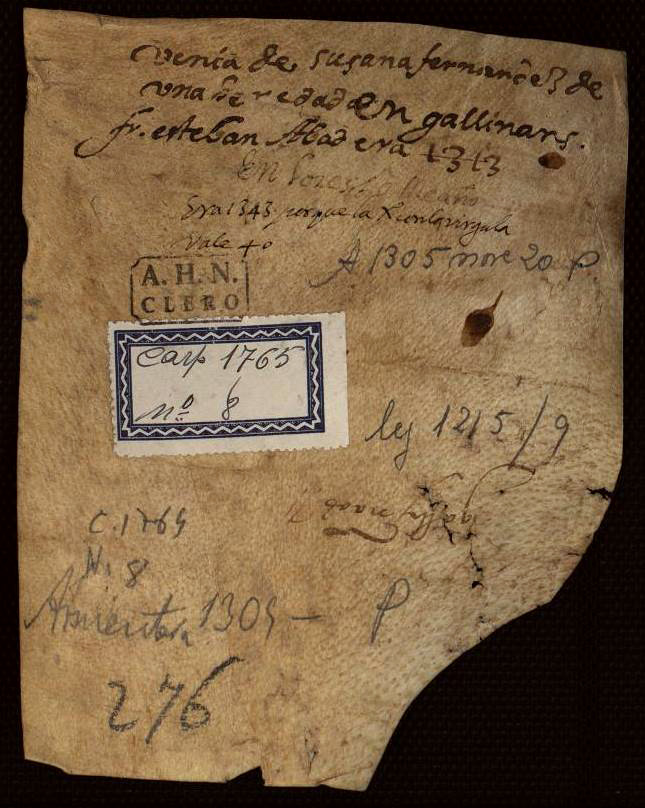 venta de susana fernandez de
una heredad en gallinans.
fr. esteban Abad era 1313
En
Era 1343 porque la X con la virgula
vale 40
A 1305 nore 20 P.
A. H. N.
CLERO
Carp 1765
nº 8
leg 1215/9
C. 1765
N. 8
Armentera 1305 - P
276